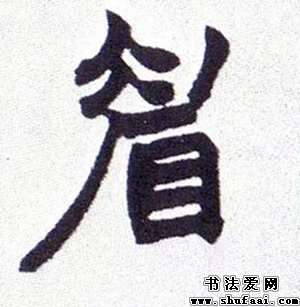 眉
书法爱网
www.shufaai.com